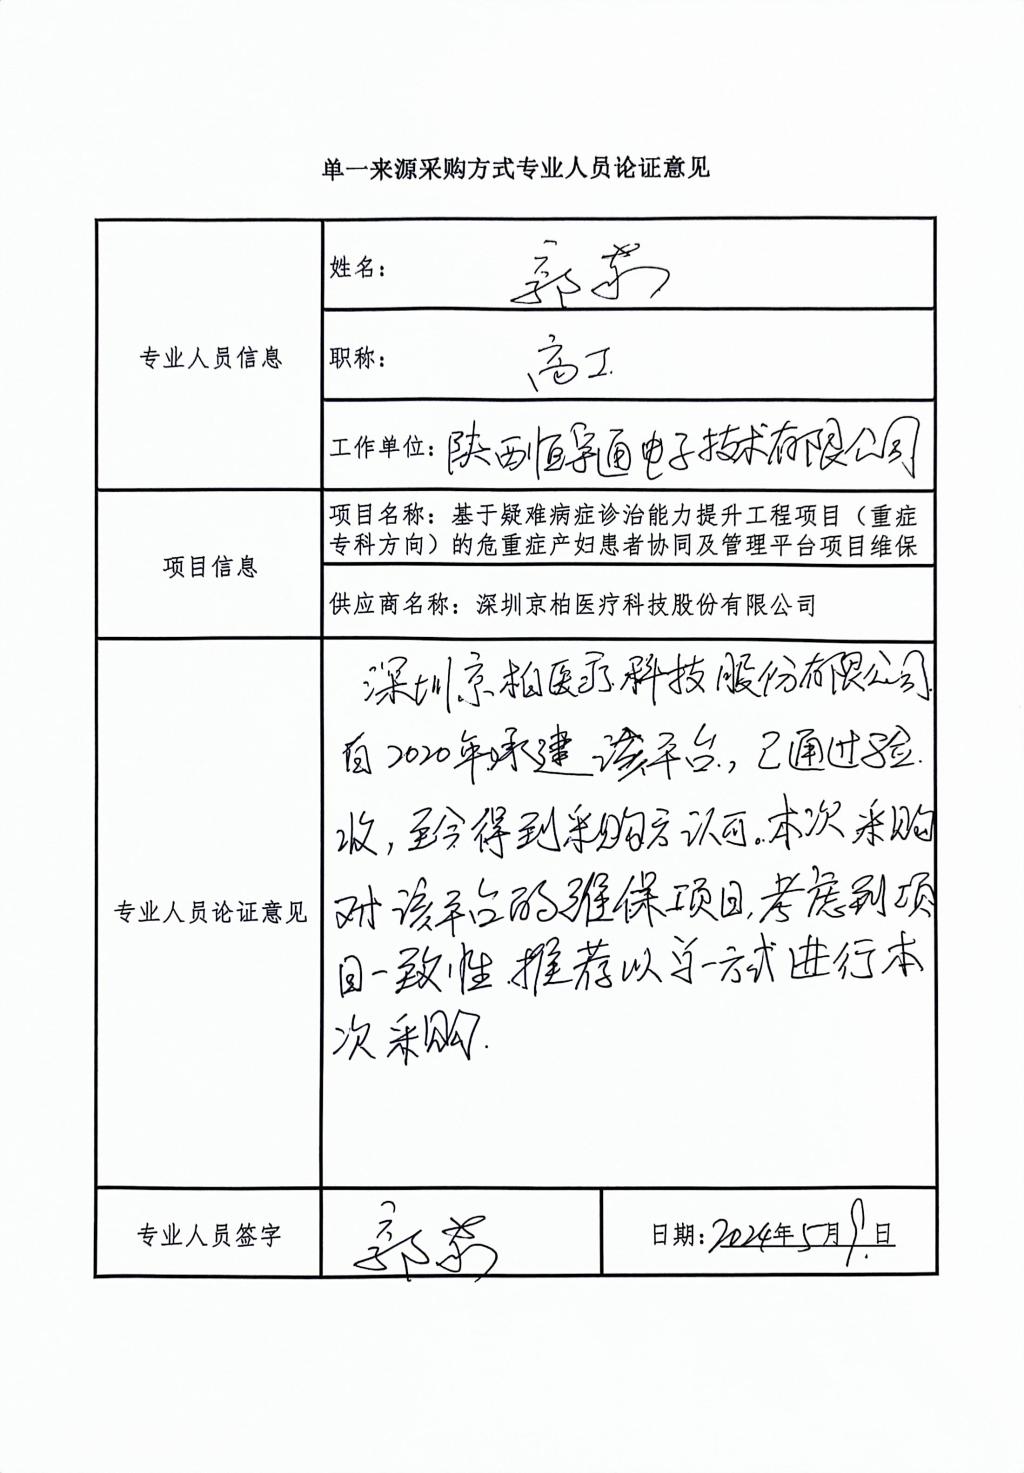 单一来源采购方式专业人员论证意见
专业人员信息
姓名：郭
职称：高工
工作单位：陕西恒孚通电子技术有限公司
项目信息
项目名称：基于疑难病症诊治能力提升工程项目（重症
专科方向）的危重症产妇患者协同及管理平台项目维保
供应商名称：深圳京柏医疗科技股份有限公司
专业人员论证意见
深圳京柏医疗科技股份有限公司
自2020年承建该平台，已通过验
收，至今得到采购方认可。本次采购
对该平台的维保项目，考虑到项
目一致性.推荐以单一方式进行本
次采购.
专业人员签字
郭
日期：2024年5月9日